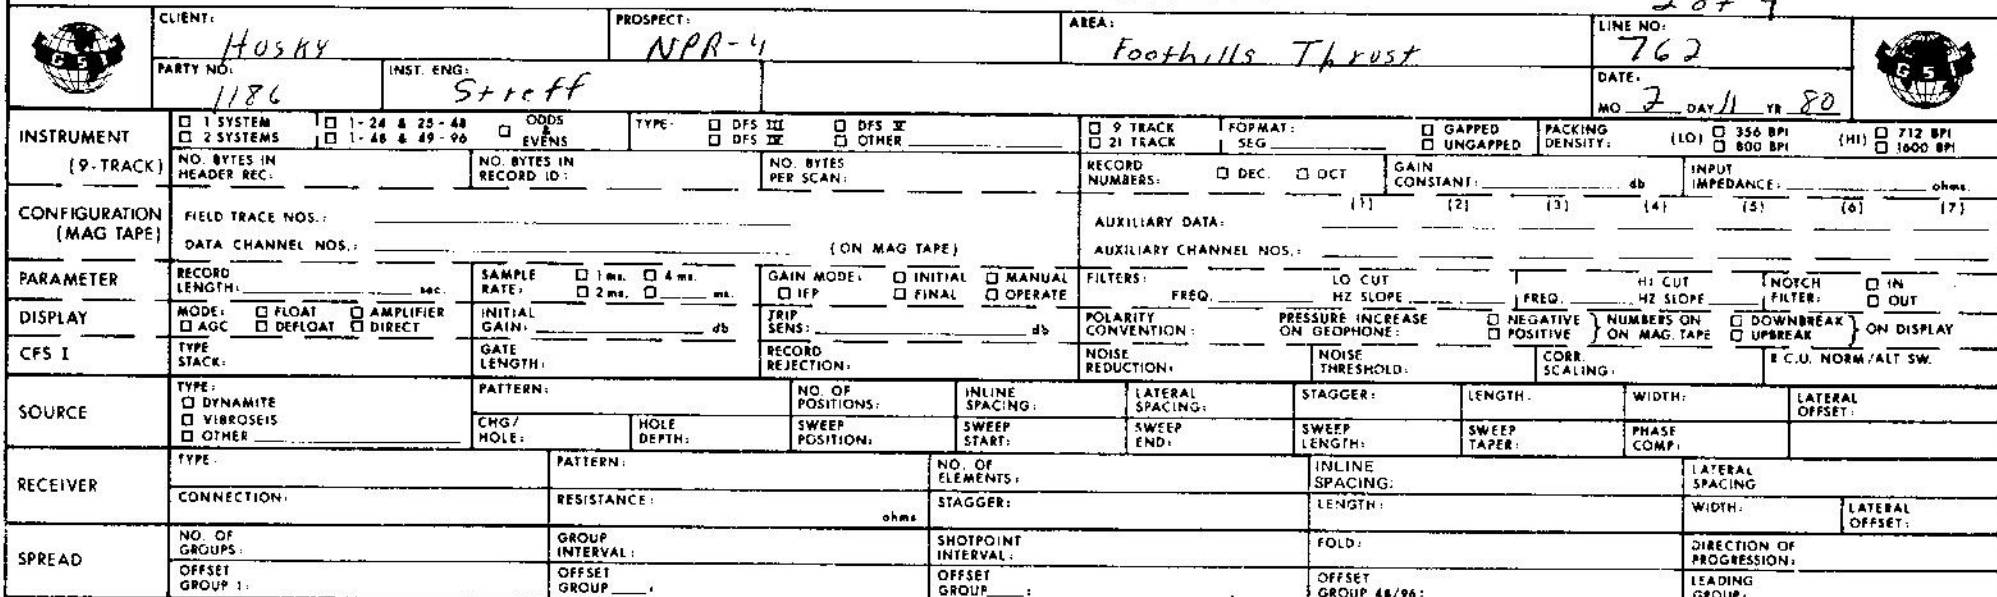 2 of 9
CLIENT: Husky PROSPECT: NPR-4 AREA: Foothills Thrust LINE NO: 762
GSI GSI
PARTY NO: 1186 INST. ENG: Streff DATE: MO 2 DAY 11 YR 80
INSTRUMENT (9-TRACK) □ 1 SYSTEM □ 2 SYSTEMS □ 1-24 & 25-48 □ 1-48 & 49-96 □ ODDS & EVENS TYPE: □ DFS III □ DFS IV □ DFS V □ OTHER □ 9 TRACK □ 21 TRACK FORMAT: SEG □ GAPPED □ UNGAPPED PACKING DENSITY: (LO) □ 356 BPI □ 800 BPI (HI) □ 712 BPI □ 1600 BPI
NO. BYTES IN HEADER REC: NO. BYTES IN RECORD ID: NO. BYTES PER SCAN: RECORD NUMBERS: □ DEC. □ OCT GAIN CONSTANT: db INPUT IMPEDANCE: ohms.
CONFIGURATION (MAG TAPE) FIELD TRACE NOS.: AUXILIARY DATA: (1) (2) (3) (4) (5) (6) (7)
DATA CHANNEL NOS.: (ON MAG TAPE) AUXILIARY CHANNEL NOS.:
PARAMETER RECORD LENGTH: sec. SAMPLE RATE: □ 1 ms. □ 4 ms. □ 2 ms. □ ms. GAIN MODE: □ INITIAL □ MANUAL □ IFP □ FINAL □ OPERATE FILTERS: FREQ. LO CUT HZ SLOPE FREQ. HI CUT HZ SLOPE NOTCH FILTER: □ IN □ OUT
DISPLAY MODE: □ FLOAT □ AMPLIFIER □ AGC □ DEFLOAT □ DIRECT INITIAL GAIN: db TRIP SENS: db POLARITY CONVENTION: PRESSURE INCREASE ON GEOPHONE: □ NEGATIVE □ POSITIVE } NUMBERS ON MAG. TAPE □ DOWNBREAK □ UPBREAK } ON DISPLAY
CFS I TYPE STACK: GATE LENGTH: RECORD REJECTION: NOISE REDUCTION: NOISE THRESHOLD: CORR. SCALING: R.C.U. NORM/ALT SW.
SOURCE TYPE: □ DYNAMITE □ VIBROSEIS □ OTHER PATTERN: NO. OF POSITIONS: INLINE SPACING: LATERAL SPACING: STAGGER: LENGTH: WIDTH: LATERAL OFFSET:
CHG/HOLE: HOLE DEPTH: SWEEP POSITION: SWEEP START: SWEEP END: SWEEP LENGTH: SWEEP TAPER: PHASE COMP:
RECEIVER TYPE: PATTERN: NO. OF ELEMENTS: INLINE SPACING: LATERAL SPACING
CONNECTION: RESISTANCE: ohms STAGGER: LENGTH: WIDTH: LATERAL OFFSET:
SPREAD NO. OF GROUPS: GROUP INTERVAL: SHOTPOINT INTERVAL: FOLD: DIRECTION OF PROGRESSION:
OFFSET GROUP 1: OFFSET GROUP : OFFSET GROUP : OFFSET GROUP 48/96: LEADING GROUP: